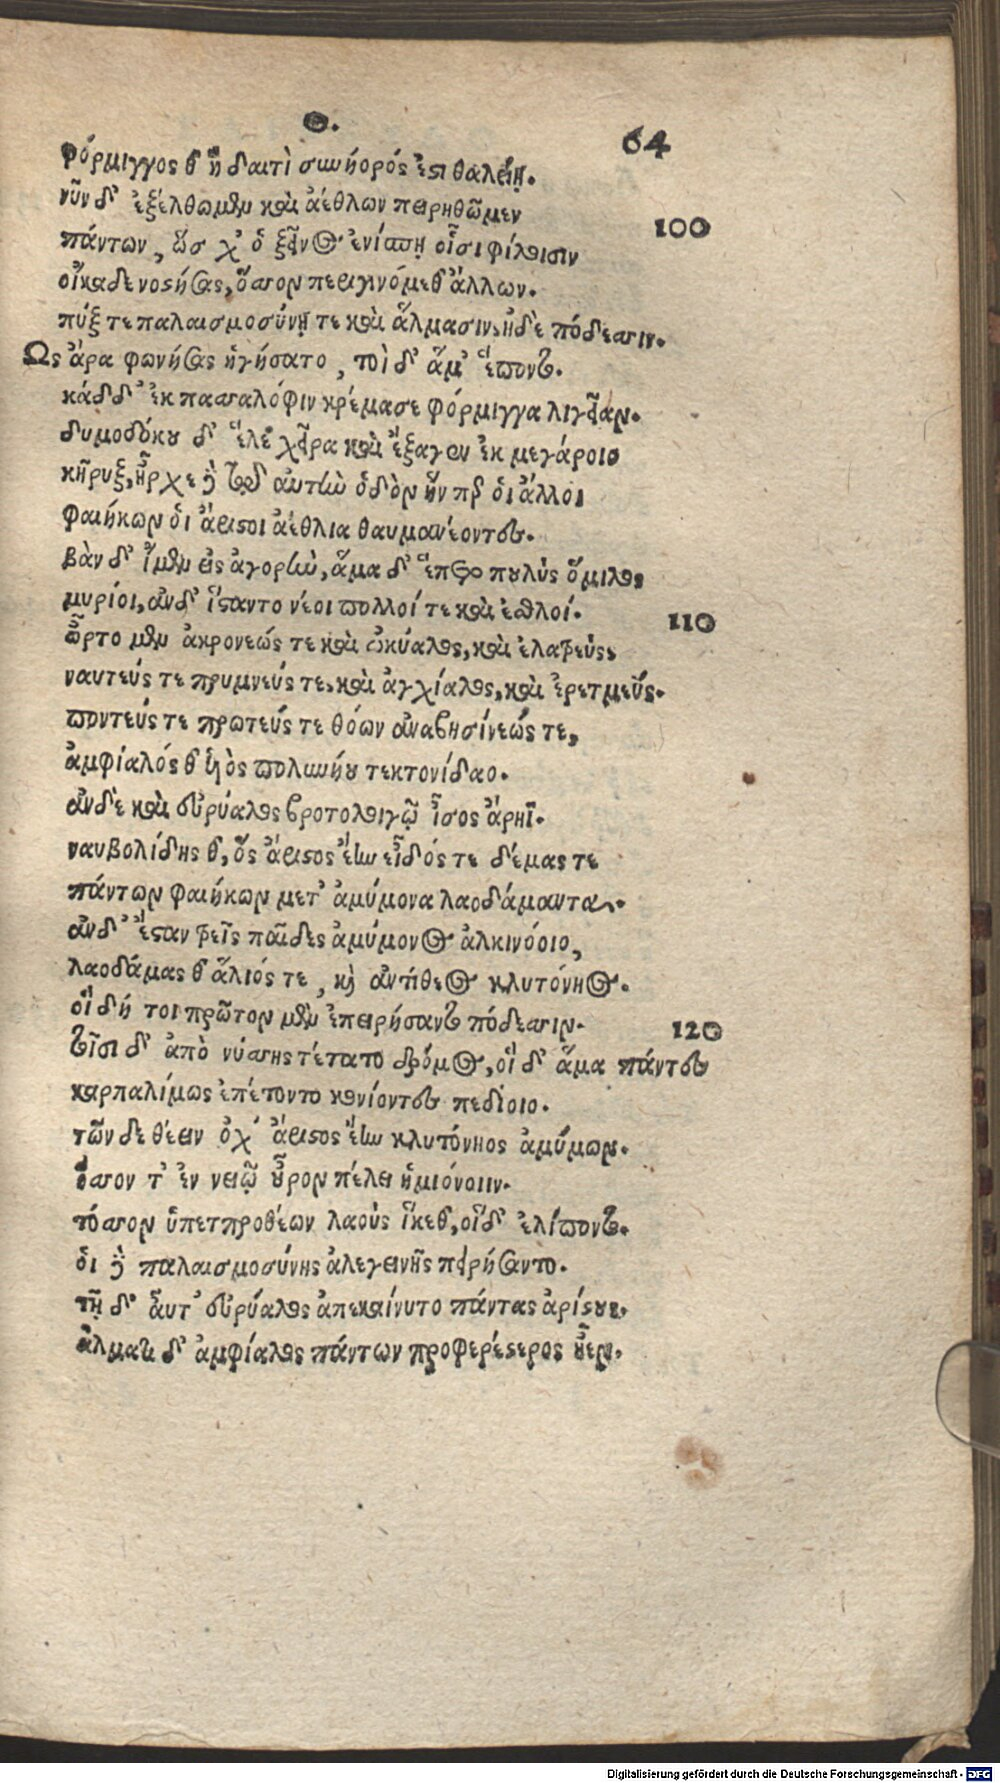 Θ.
64
φόρμιγγος θ' ἣ δαιτὶ συνήορός ἐστι θαλείῃ.
νῦν δ' ἐξέλθωμεν καὶ ἀέθλων πειρηθῶμεν
100
πάντων, ὥς χ' ὁ ξεῖνος ἐνίσπῃ οἷσι φίλοισιν
οἴκαδε νοστήσας, ὅσσον περιγινόμεθ' ἄλλων.
πύξ τε παλαισμοσύνῃ τε καὶ ἅλμασιν, ἠδὲ πόδεσσιν.
Ως ἄρα φωνήσας ἡγήσατο, τοὶ δ' ἅμ' ἕποντο.
κάδ δ' ἐκ πασσαλόφιν κρέμασε φόρμιγγα λιγεῖαν.
δυμοδόκου δ' ἕλε χεῖρα καὶ ἔξαγεν ἐκ μεγάροιο
κῆρυξ, ἦρχε δὲ τῷ αὐτὴν ὁδὸν ἥν περ ὁι ἄλλοι
φαιήκων ὁι ἄριστοι ἀέθλια θαυμανέοντες.
βὰν δ' ἴμεν εἰς ἀγορὴν, ἅμα δ' ἕσπετο πουλὺς ὅμιλος
μυρίοι, ἂν δ' ἵσταντο νέοι πολλοί τε καὶ ἐσθλοί.
110
ὦρτο μὲν ἀκρονεώς τε καὶ ὠκύαλος, καὶ ἐλατρεύς,
ναυτεύς τε πρυμνεύς τε, καὶ ἀγχίαλος, καὶ ἐρετμεύς.
ποντεύς τε πρωτεύς τε θόων ἀναβησίνεώς τε,
ἀμφίαλός θ' ὑὸς πολυνήου τεκτονίδαο.
ἂν δὲ καὶ εὐρύαλος βροτολοιγῷ ἶσος ἄρηϊ.
ναυβολίδης θ', ὃς ἄριστος ἔην εἶδός τε δέμας τε
πάντων φαιήκων μετ' ἀμύμονα λαοδάμαντα.
ἂν δ' ἔσταν τρεῖς παῖδες ἀμύμονος ἀλκινόοιο,
λαοδάμας θ' ἅλιός τε, καὶ ἀντίθεος κλυτόνηος.
οἳ δή τοι πρῶτον μὲν ἐπειρήσαντο πόδεσσιν.
120
τοῖσι δ' ἀπὸ νύσσης τέτατο δρόμος, οἳ δ' ἅμα πάντες
καρπαλίμως ἐπέτοντο κονίοντες πεδίοιο.
τῶν δε θέειν ὀχ' ἄριστος ἔην κλυτόνηος ἀμύμων.
ὅσσον τ' ἐν νειῷ οὖρον πέλει ἡμιόνοιιν.
τόσσον ὑπεκπροθέων λαοὺς ἵκεθ', οἳ δ' ἐλίποντο.
ὁι δὲ παλαισμοσύνης ἀλεγεινῆς πειρήσαντο.
τῇ δ' ἆυτ' εὐρύαλος ἀπεκαίνυτο πάντας ἀρίστους.
ἅλματι δ' ἀμφίαλος πάντων προφερέστερος ἦεν.
Digitalisierung gefördert durch die Deutsche Forschungsgemeinschaft - DFG